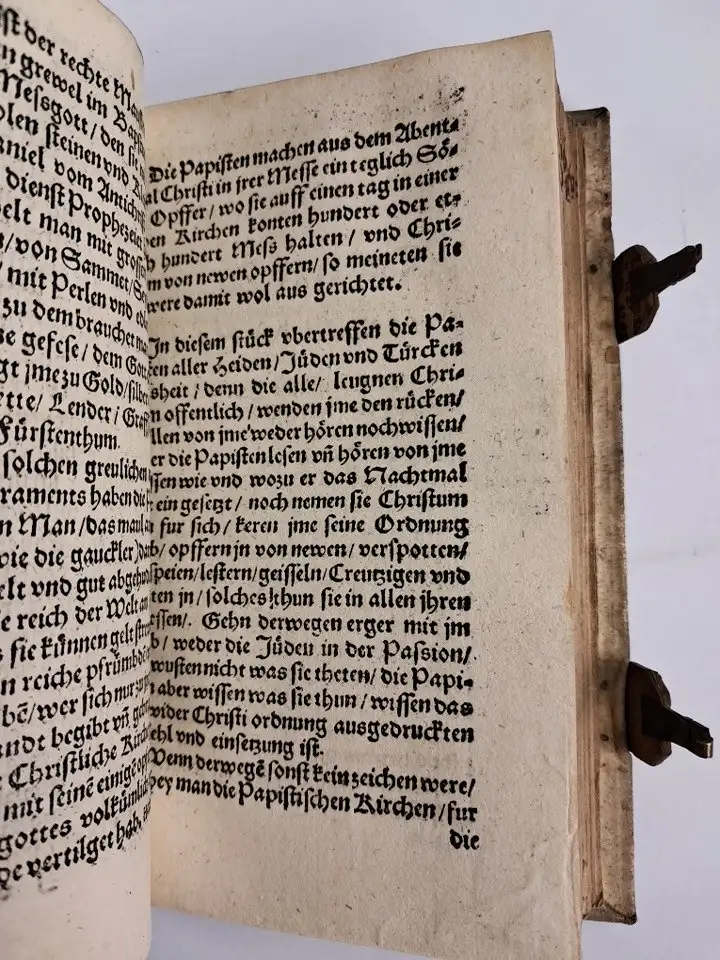 ist der rechte
n grewel im
Messgott / den
len steinen vnd
niel vom Antich
dienst Prophezei
elt man mit gross
n/von Sammet/
/ mit Perlen vnd
zu dem brauchet
e gefese / dem Got
gt jme zu Gold/silb
ette/ Lender / Graff
Fürstenthum.
solchen greulichen
raments haben die
n Man /das maul
wie die gauckler
elt vnd gut abge
e reich der Welt an
s sie künnen gelt
n reiche pfrümb
bē/wer sich nur zu
ndt begibt vñ
Christliche Kirch
mit seinē einigē
gottes volkümlich
de vertilget hab,
Die Papisten machen aus dem Abent⸗
al Christi in jrer Messe ein teglich Sö⸗
Opffer / wo sie auff einen tag in einer
en Kirchen konten hundert oder et⸗
h hundert Mess halten / vnd Chri⸗
m von newen opffern/ so meineten sie
were damit wol aus gerichtet.
In diesem stück vbertreffen die Pa⸗
en aller Heiden/Jüden vnd Türcken
sheit / denn die alle/ leugnen Chri⸗
n offentlich / wenden jme den rücken/
llen von jme weder hören noch wissen/
er die Papisten lesen vñ hören von jme
ssen wie vnd wozu er das Nachtmal
ein gesetzt / noch nemen sie Christum
n fur sich / keren jme seine Ordnung
b/ opffern jn von newen / verspotten/
speien/lestern/geisseln/Creutzigen vnd
ten jn / solches thun sie in allen jhren
essen/. Gehn derwegen erger mit jm
b / weder die Jüden in der Passion/
wusten nicht was sie theten/ die Papi⸗
n aber wissen was sie thun / wissen das
wider Christi ordnung ausgedruckten
ehl vnd einsetzung ist.
Wenn derwegē sonst kein zeichen were/
bey man die Papistischen Kirchen /fur
die